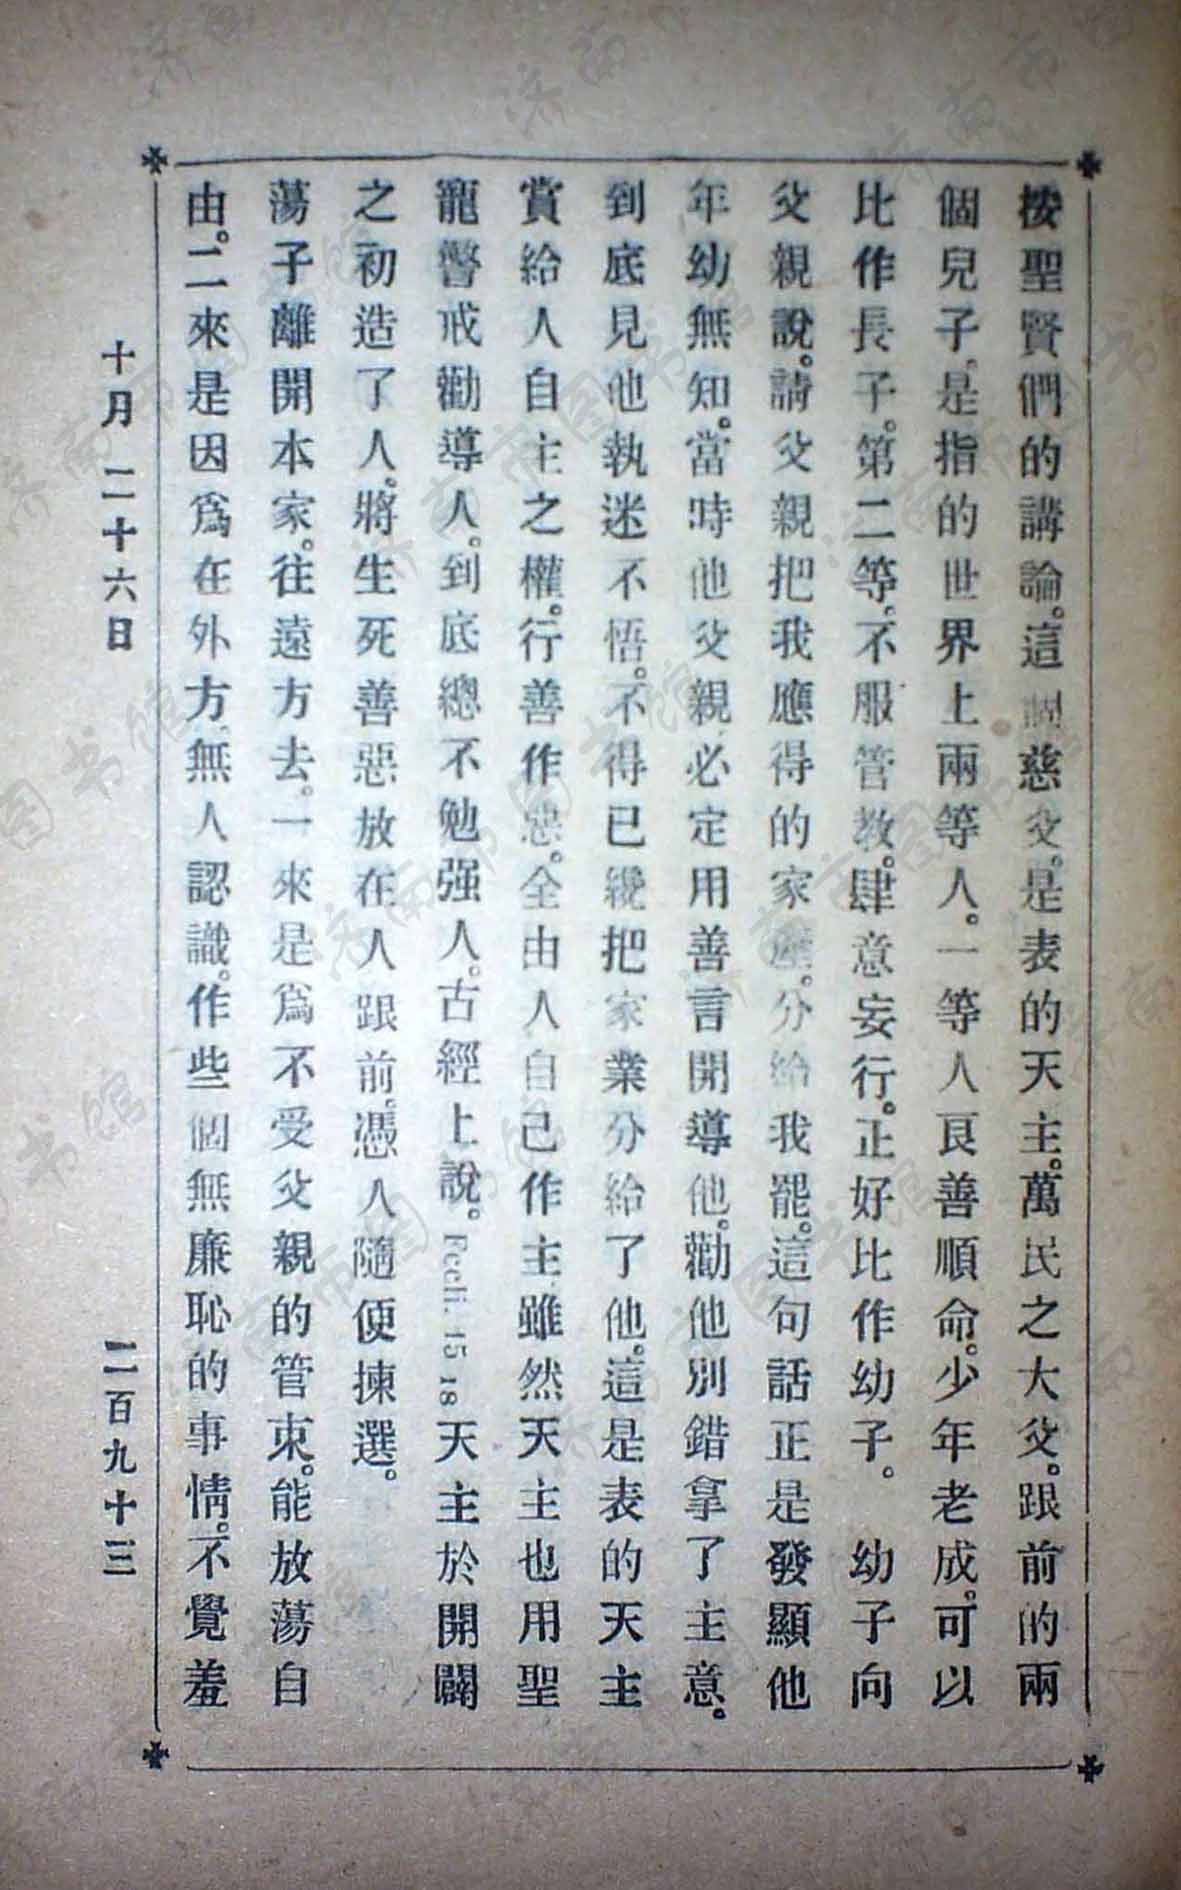 按聖賢們的講論。這個慈父。是表的天主。萬民之大父。跟前的兩
個兒子。是指的世界上兩等人。一等人良善順命。少年老成。可以
比作長子。第二等、不服管教。肆意妄行。正好比作幼子。　幼子向
父親說。請父親把我應得的家產。分給我罷。這句話正是發顯他
年幼無知。當時他父親必定用善言開導他。勸他別錯拿了主意。
到底見他執迷不悟。不得已纔把家業分給了他。這是表的天主
賞給人自主之權。行善作惡。全由人自己作主、雖然天主也用聖
寵警戒勸導人。到底總不勉强人。古經上說。Eccli. 15 18 天主於開闢
之初造了人。將生死善惡放在人跟前。憑人隨便揀選。
蕩子離開本家。往遠方去。一來是爲不受父親的管束。能放蕩自
由。二來是因爲在外方、無人認識。作些個無廉恥的事情。不覺羞
十月二十六日
二百九十三
济南市图书馆